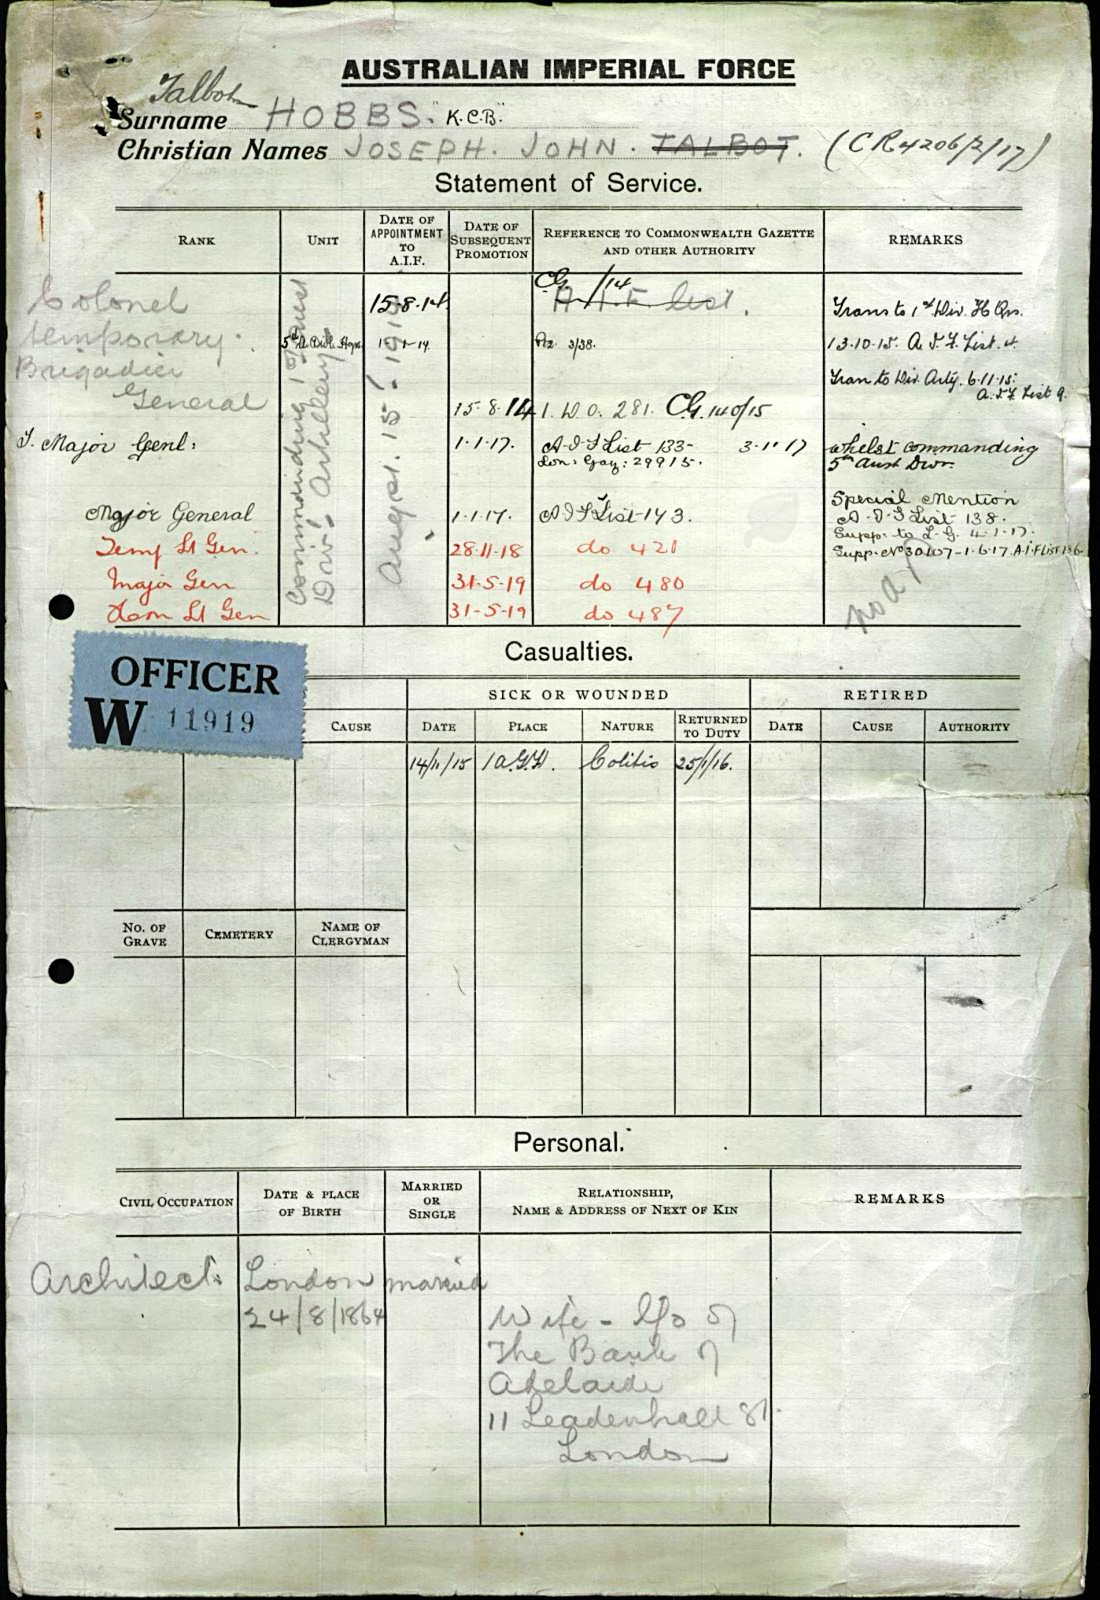 AUSTRALIAN IMPERIAL FORCE
Talbot
Surname HOBBS. "K.C.B."
Christian Names JOSEPH. JOHN. TALBOT. (CR4206/2/17)
Statement of Service.
RANK
UNIT
DATE OF APPOINTMENT TO A.I.F.
DATE OF SUBSEQUENT PROMOTION
REFERENCE TO COMMONWEALTH GAZETTE AND OTHER AUTHORITY
REMARKS
Colonel
temporary.
Brigadier
General
Commanding 1st Aust
Div: Artillery
15-8-14
August. 15
CG /14
A.I.F. List.
Po 3/38.
Trans to 1st Div. H Qrs.
13.10.15. A.I.F. List 4.
Tran to Div Arty. 6.11.15.
A.I.F List 9.
15-8-14 1. W.O. 281. CG.140/15
T. Major Genl: 1-1-17. A.I.F List 133- 3.1.17 whilst commanding
Lon: Gaz: 29915. 5th Aust Divn.
Major General 1-1-17. A I F List 143.
Special Mention
A.I.F List 138.
Supp. to L.G. 4.1.17.
Supp. No 30107-1.6.17. A.I.F LIST 186
Temp Lt Gen. 28-11-18 do 421
Major Gen 31-5-19 do 480
Hon Lt Gen 31-5-19 do 487
OFFICER
W 11919
Casualties.
CAUSE
SICK OR WOUNDED
DATE PLACE NATURE RETURNED TO DUTY
RETIRED
DATE CAUSE AUTHORITY
14/11/15 1 A.G.H. Colitis 25/1/16.
NO. OF GRAVE
CEMETERY
NAME OF CLERGYMAN
Personal.
CIVIL OCCUPATION
DATE & PLACE OF BIRTH
MARRIED OR SINGLE
RELATIONSHIP, NAME & ADDRESS OF NEXT OF KIN
REMARKS
Architect.
London
24/8/1864
married
Wife - C/o of
The Bank of
Adelaide
11 Leadenhall St.
London